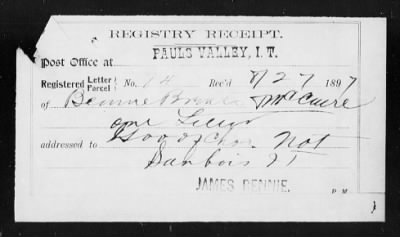 REGISTRY RECEIPT.
Post Office at PAULS VALLEY, I. T.
Registered Letter Parcel No. 14 Rec'd 7/27 1897
of Bennie McCuere
one Letter
addressed to Not
Sanbois IT
JAMES RENNIE.
P M